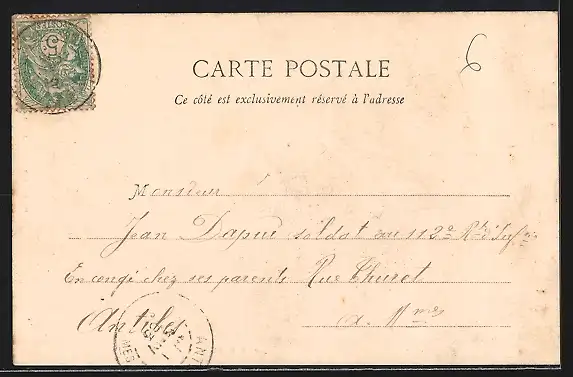 6
CARTE POSTALE
Ce côté est exclusivement réservé à l'adresse
Monsieur
Jean Dapué soldat au 112e Rt d'Inf-ie
En congé chez ses parents Rue Thuret
Antibes
a. Mmes
ANT